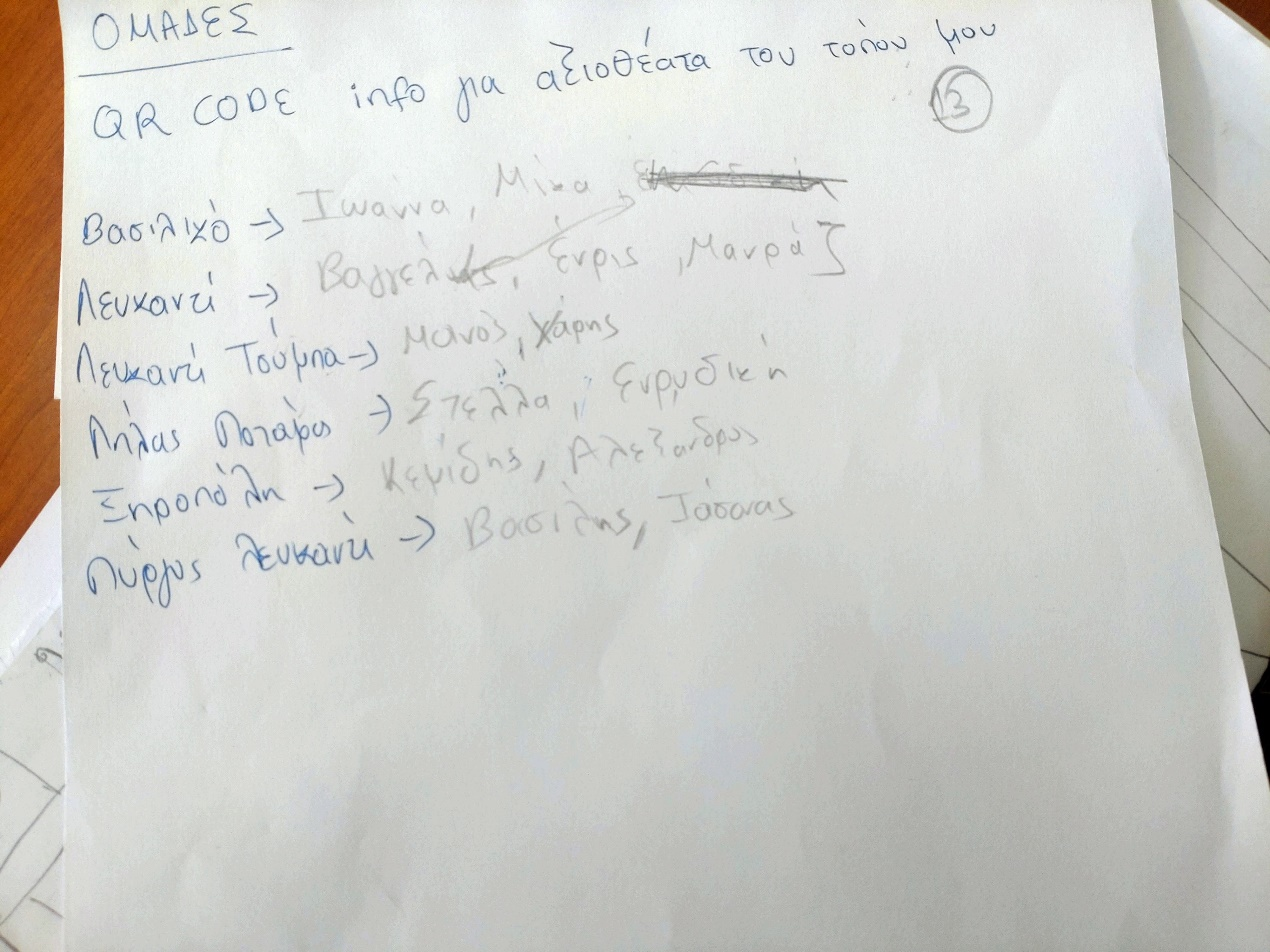 ΟΜΑΔΕΣ
QR CODE info για αξιοθέατα του τόπου μου
13
Βασιλικό → Ιωάννα, Μίκα,
Λευκαντί → Βαγγέλης, Ένρις, Μαυράζ
Λευκαντί Τούμπα → Μάνος, Χάρης
Λήλας Ποταμός → Στέλλα, Ευρυδίκη
Ξηροπόλη → Αλέξανδρος
Πύργος Λευκαντί → Βασίλης, Ιάσονας